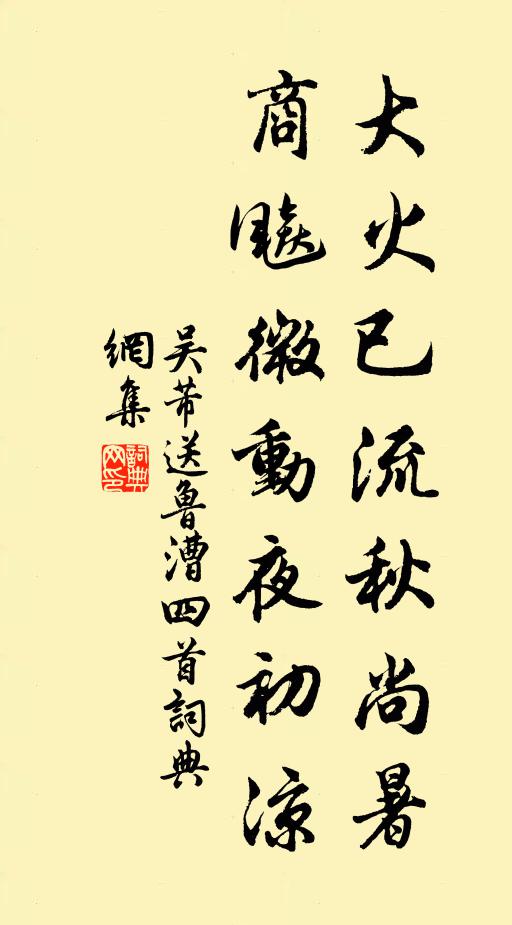 大火已流秋尚暑
商飈微動夜初涼
吴芾送魯漕四首詞典
網集
詞典
网印